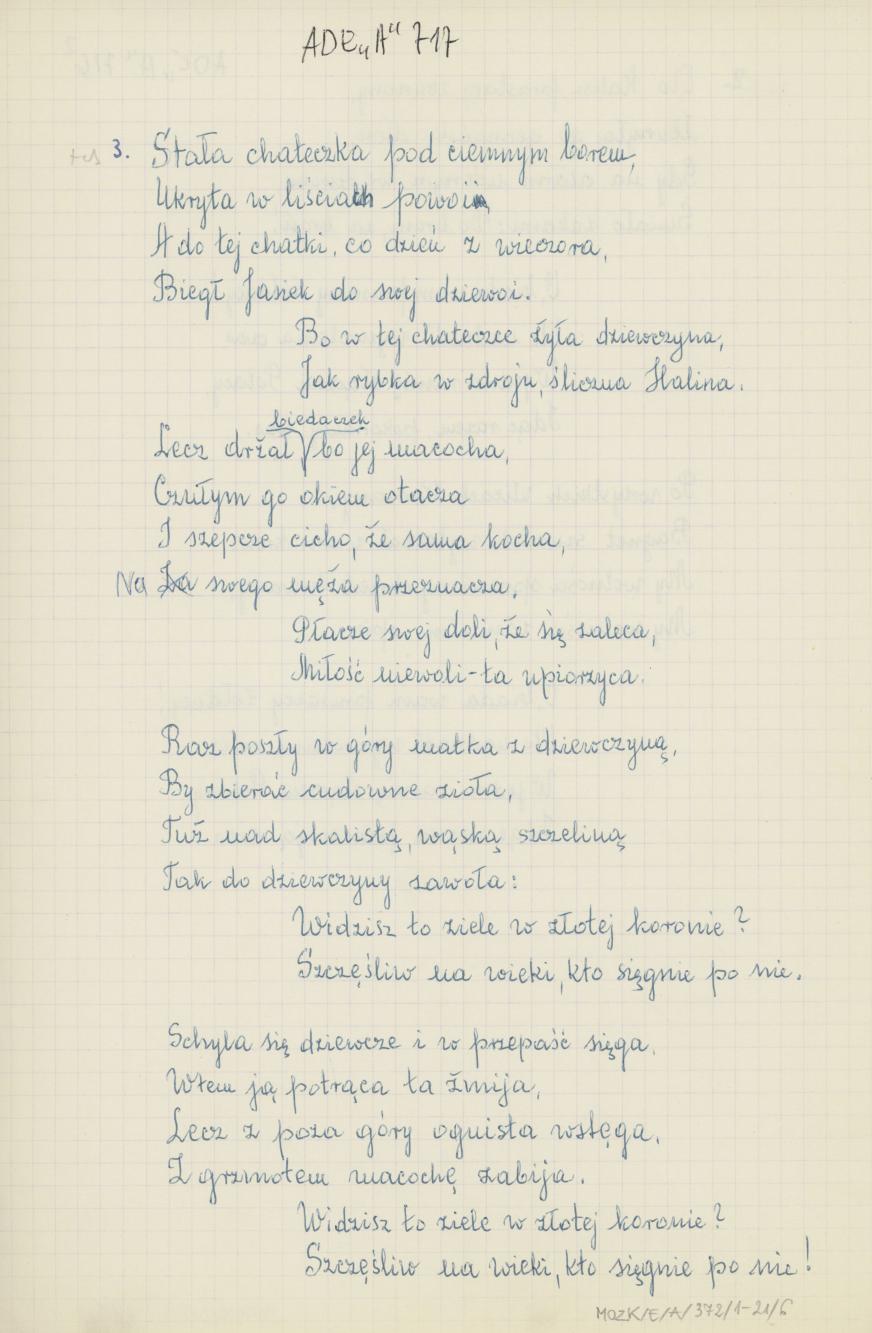 ADE "A" 717
3. Stała chateczka pod ciemnym borem,
Ukryta w liściach powoi,
A do tej chatki, co dzień z wieczora,
Biegł Jasiek do swej dziewoi.
Bo w tej chateczce żyła dziewczyna,
Jak rybka w zdroju, śliczna Halina.
biedaczek
Lecz drżał bo jej macocha,
Czułym go okiem otacza
I szepcze cicho, że sama kocha,
Na Za swego męża przeznacza.
Płacze swej doli, że się zaleca,
Miłość niewoli - ta upiorzyca.
Raz poszły w góry matka z dziewczyną,
By zbierać cudowne zioła,
Tuż nad skalistą, wąską szczeliną
Tak do dziewczyny zawoła:
Widzisz to ziele w złotej koronie?
Szczęśliw na wieki, kto sięgnie po nie.
Schyla się dziewcze i w przepaść sięga,
Wtem ją potrąca ta żmija,
Lecz z poza góry ognista wstęga,
Z grzmotem macochę zabija.
Widzisz to ziele w złotej koronie?
Szczęśliw na wieki, kto sięgnie po nie!
MOZK/E/A/372/1-21/6